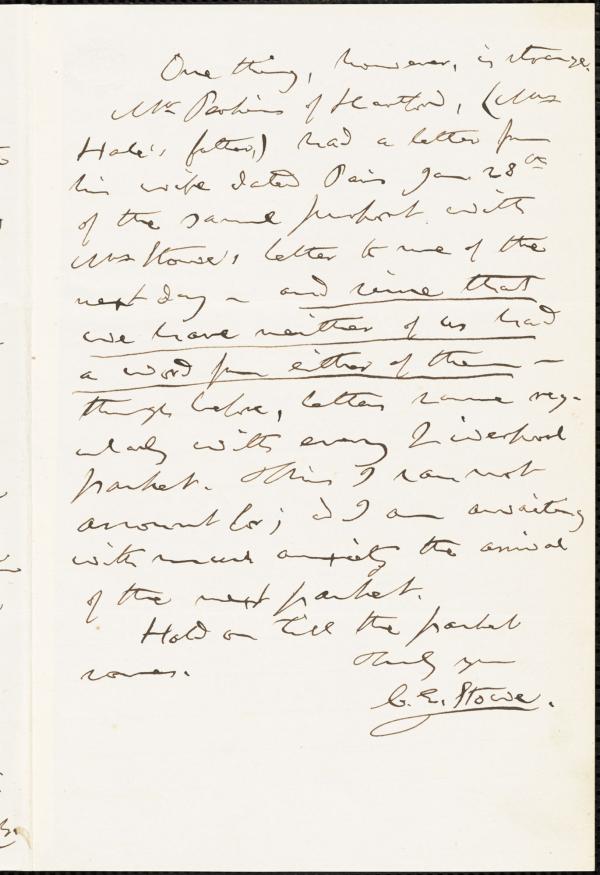 One thing, however, is strange.
Mr Perkins of Hartford, (Mrs
Hale's father,) had a letter from
his wife dated Paris Jan 28th
of the same purport with
Mrs Stowe's letter to me of the
next day – and since that
we have neither of us had
a word from either of them –
though before, letters came reg-
ularly with every Liverpool
packet. This I can not
account for; & I am awaiting
with much anxiety the arrival
of the next packet.
Hold on till the packet
comes. Truly yrs
C. E. Stowe.